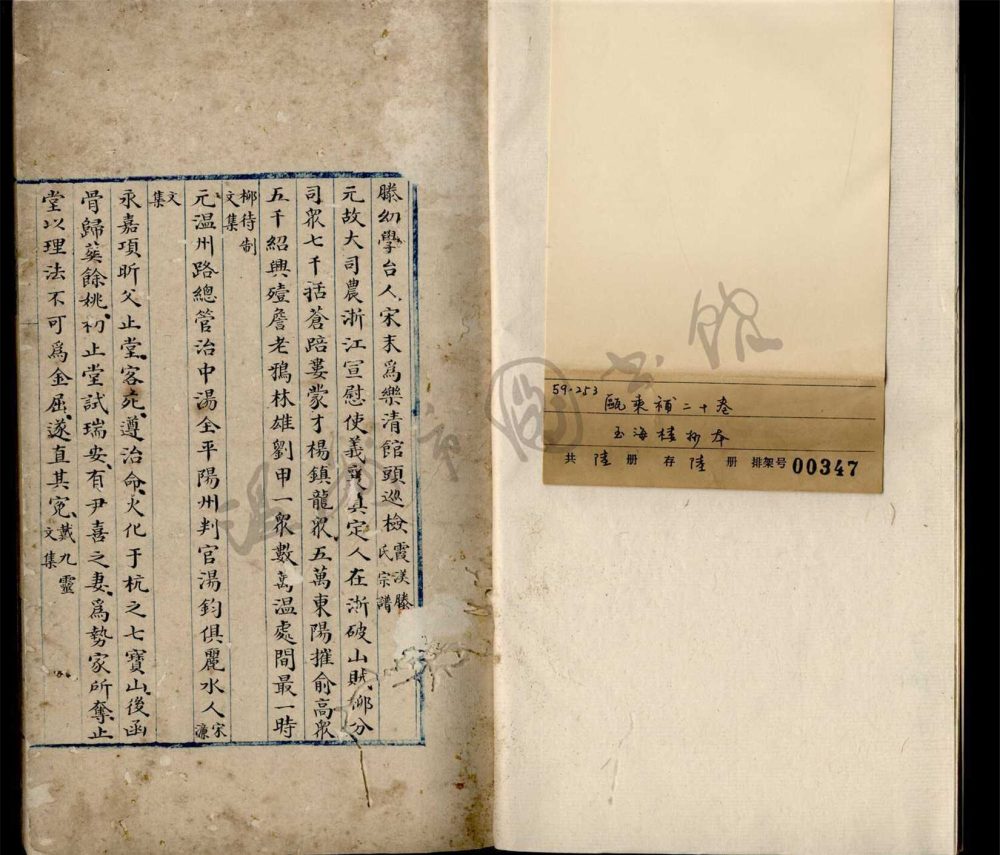 滕幼學台人宋末爲樂清館頭巡檢霞渼滕氏宗譜
元故大司農浙江宣慰使義真定人在浙破山賊柳分
司眾七千括蒼踣婁蒙才楊鎮龍眾五萬東陽摧俞高眾
五千紹興殪詹老鴉林雄劉甲一眾數萬温處間最一時
柳待制文集
元温州路總管治中湯全平陽州判官湯鈞俱麗水人宋濂
文集
永嘉項昕父止堂客死遵治命火化于杭之七寶山後函
骨歸葵餘桃初止堂試瑞安有尹喜之妻爲勢家所奪止
堂以理法不可爲金屈遂直其冤戴九靈文集
59·253
甌東補二十卷
玉海樓抄本
共 陸 册 存 陸 册 排架号 00347
圖書館